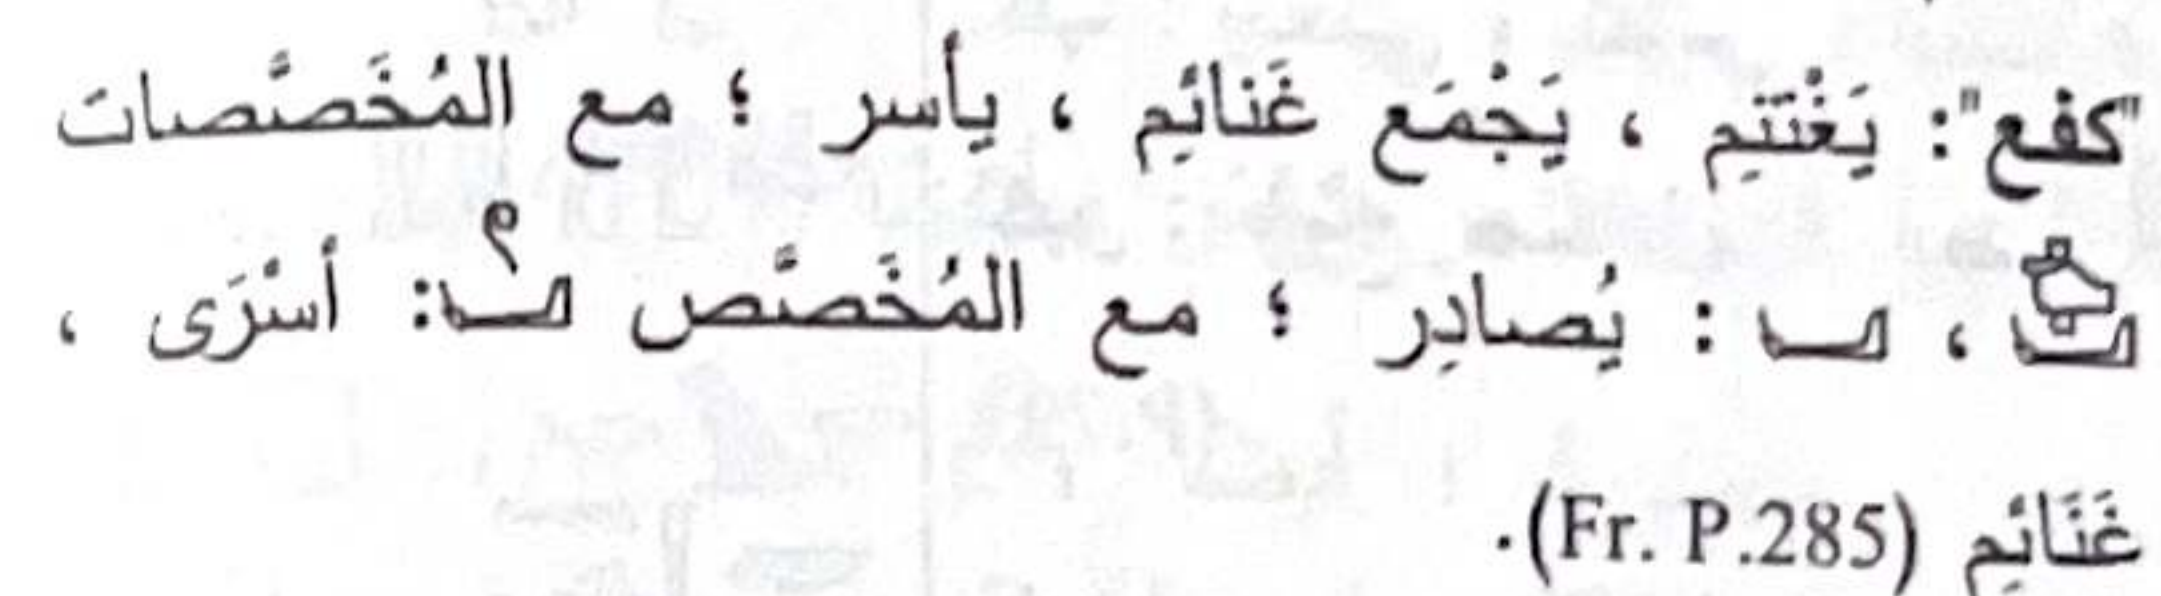 "كفع": يَغْتَنِم ، يَجْمَع غَنائِم ، يأسر ؛ مع المُخَصَّصات
، : يُصادِر ؛ مع المُخَصَّص : أسْرَى ،
غَنَائِم (Fr. P.285).